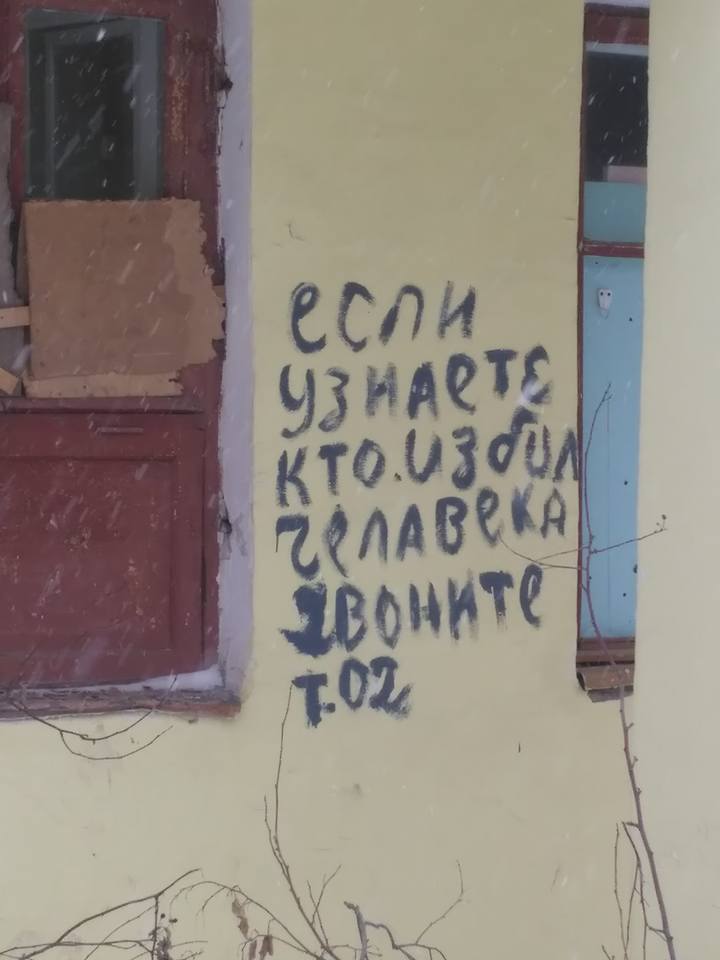 если
узнаете
кто.избил
челавека
звоните
т.02